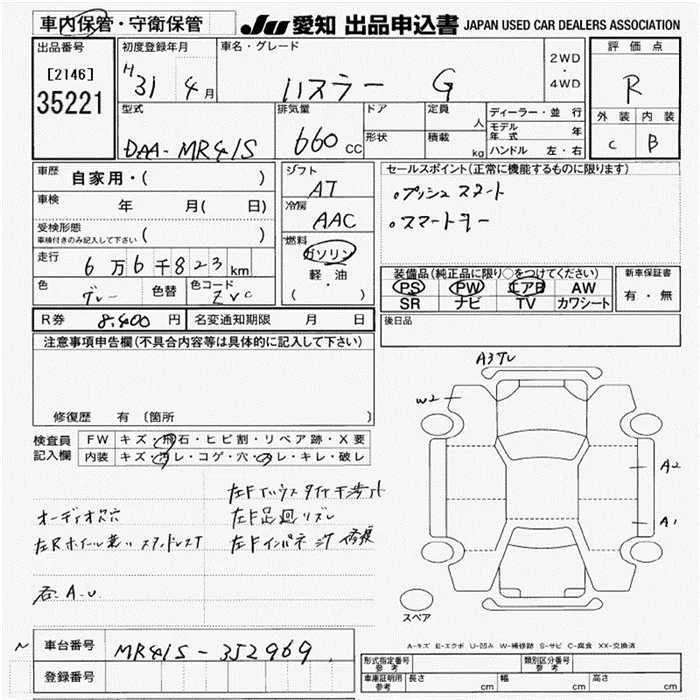 車内保管・守衛保管
JU 愛知 出品申込書 JAPAN USED CAR DEALERS ASSOCIATION
出品番号
[2146]
35221
初度登録年月
H31 4月
車名・グレード
ハスラー G
2WD
・
4WD
評価点
R
外装 内装
C B
型式
DAA-MR41S
排気量
660 CC
ドア
形状
定員
人
積載
kg
ディーラー・並行
モデル年式 年
ハンドル 左・右
車歴
自家用・( )
車検
年 月( 日)
受検形態
車検付きのみ記入して下さい
走行
6万6千823km
色
グレー
色替
色コード
ZVC
シフト
AT
冷房
AAC
燃料
ガソリン
軽・油
( )
セールスポイント(正常に機能するものに限ります)
・プッシュスタート
・スマートキー
装備品(純正品に限り○をつけてください)
PS PW エアB AW
SR ナビ TV カワシート
新車保証書
有・無
R券 8,400円 名変通知期限 月 日
後日品
注意事項申告欄(不具合内容等は具体的に記入して下さい)
修復歴 有 〔箇所 〕
検査員記入欄
FW キズ・飛石・ヒビ割・リペア跡・X要
内装 キズ・汚レ・コゲ・穴・スレ・キレ・破レ
左Fインハウス タイヤ干渉
オーディオ欠
左F足廻リズレ
左Rホイール
左Fインパネ
A.U
A3
W2
A2
A1
スペア
A-キズ E-エクボ U-凹み W-補修跡 S-サビ C-腐食 XX-交換済
車台番号
MR41S-352969
登録番号
形式指定番号
参考
類別区分番号
参考
車庫証明用
参考
長さ cm 幅 cm 高さ cm